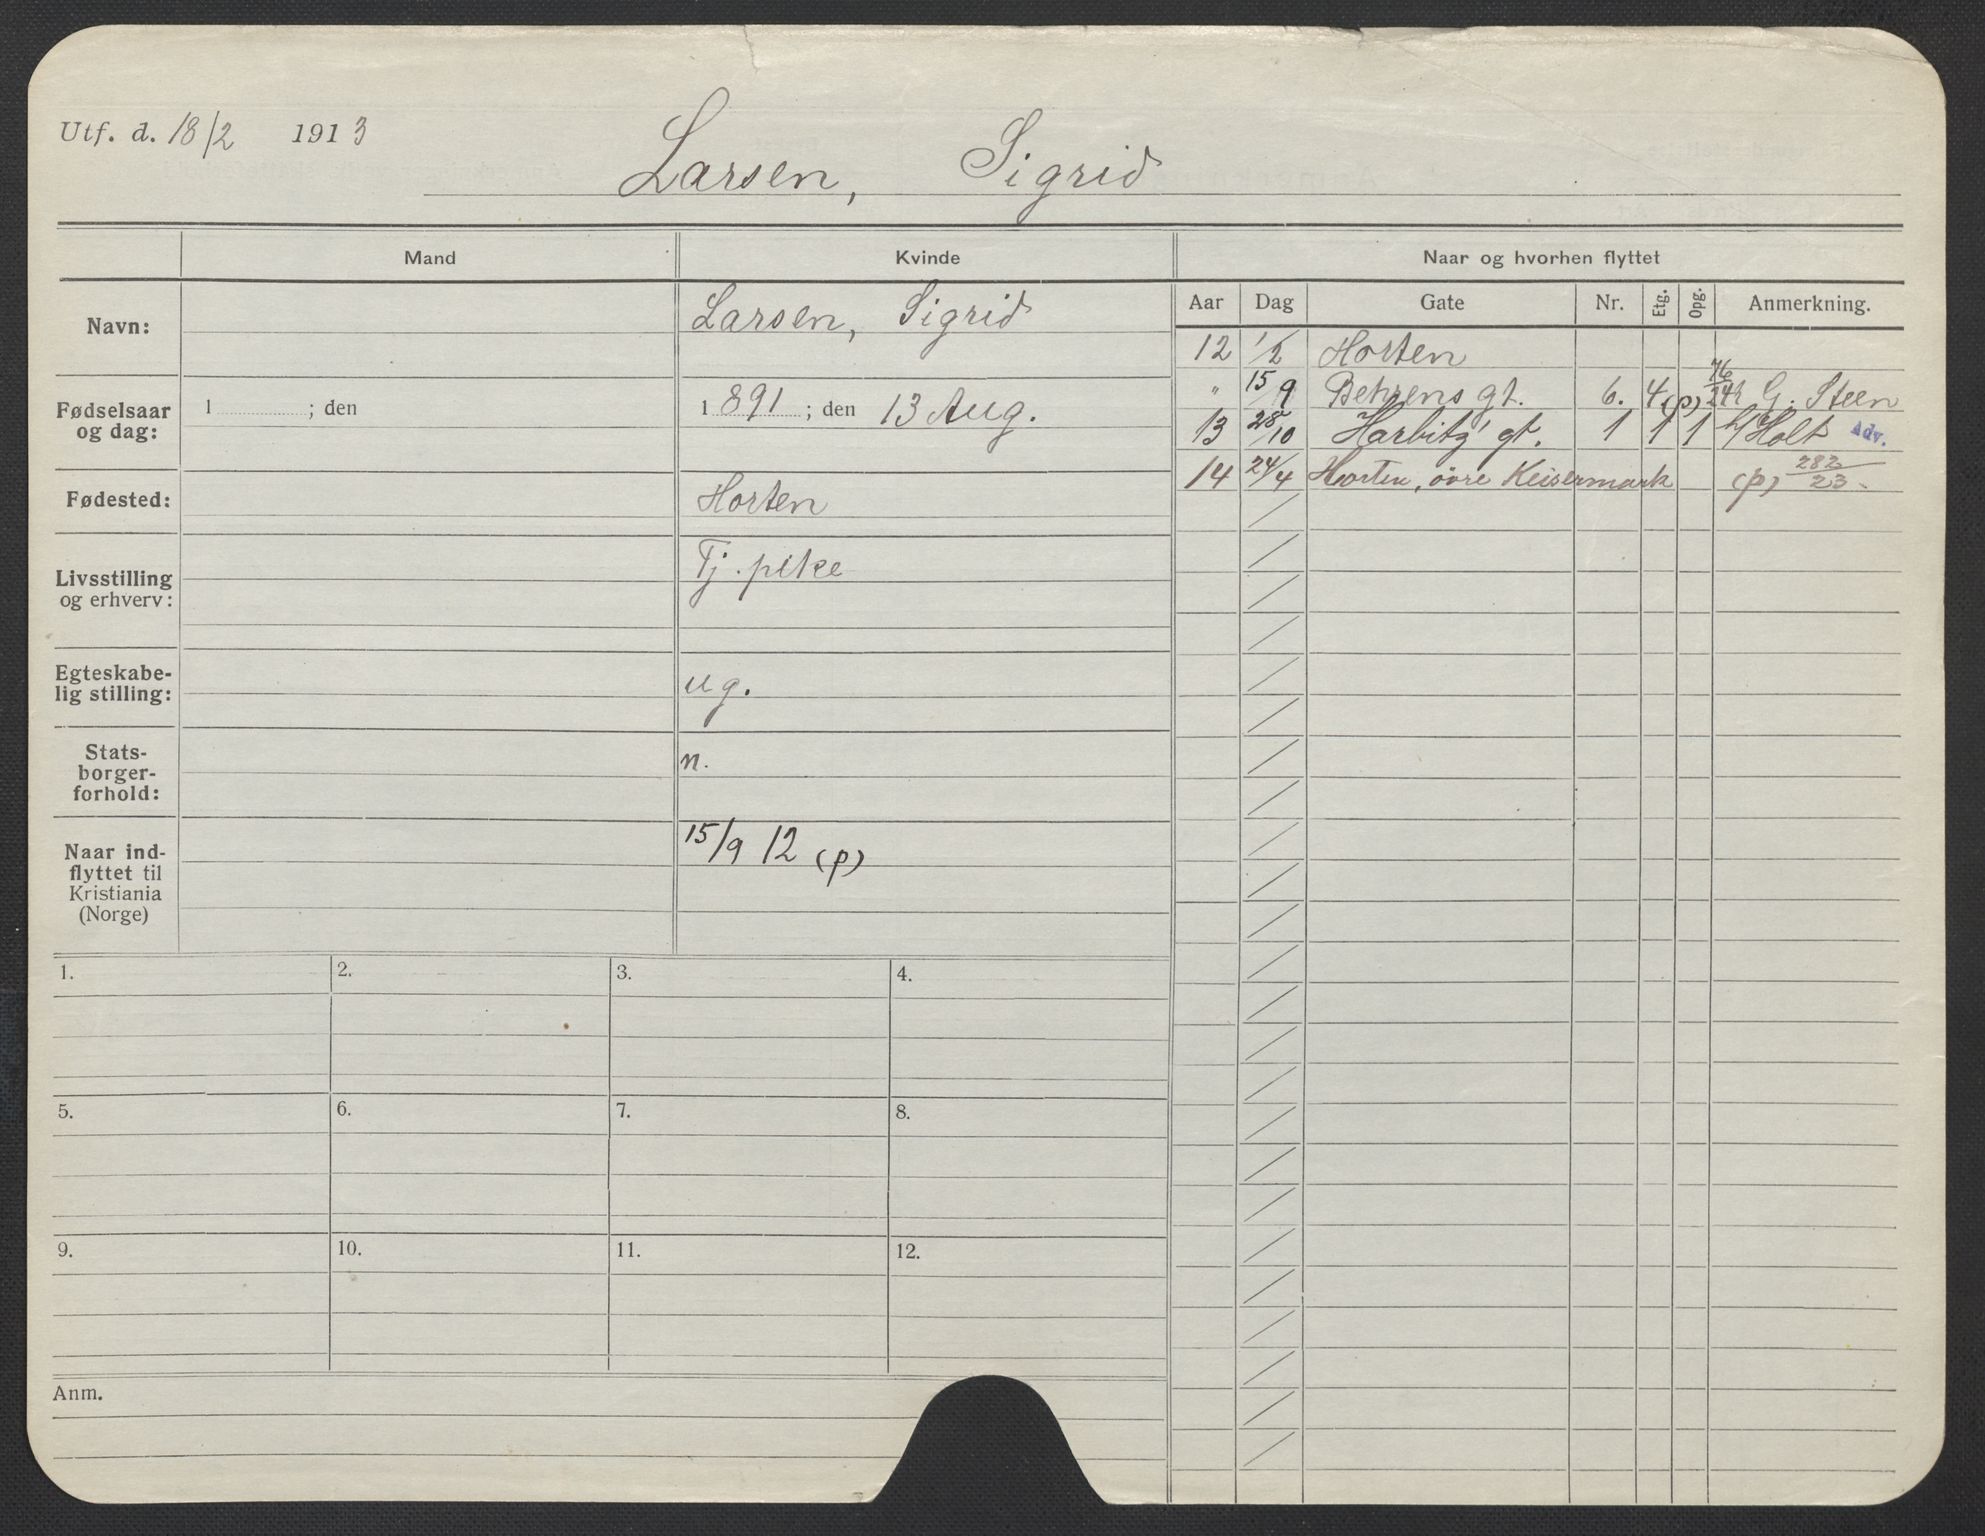 Utf. d. 18/2 1913
Larsen, Sigrid
Mand
Kvinde
Naar og hvorhen flyttet
Navn:
Larsen, Sigrid
Aar Dag Gate Nr. Etg. Opg. Anmerkning.
12 1/2 Horten
" 15/9 Behrens gt. 6. 4 (p) G. Steen
13 28/10 Harbitz' gt. 1 1 1 Holt Adv.
14 24/4 Horten, övre Keisermark (p) 282/23
Fødselsaar
og dag:
1 ; den
1 891 ; den 13 Aug.
Fødested:
Horten
Livsstilling
og erhverv:
Tj. pike
Egteskabe-
lig stilling:
ug.
Stats-
borger-
forhold:
n.
Naar ind-
flyttet til
Kristiania
(Norge)
15/9 12 (p)
1. 2. 3. 4.
5. 6. 7. 8.
9. 10. 11. 12.
Anm.